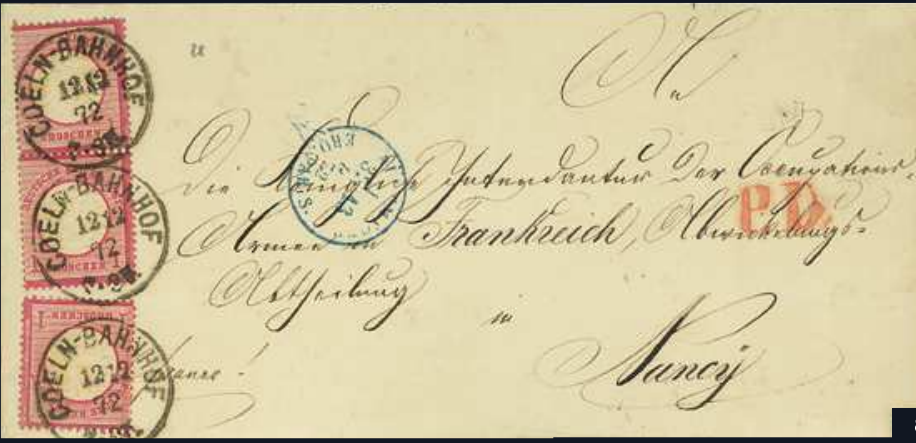 COELN-BAHNHOF
12 12
72
COELN-BAHNHOF
12 12
72
COELN-BAHNHOF
12 12
72
GROSCHEN
An
Die Königliche Intendantur Der Occupations-
P.D.
Armee in Frankreich, Abwickelungs-
Abtheilung
in
franco!
Nancÿ